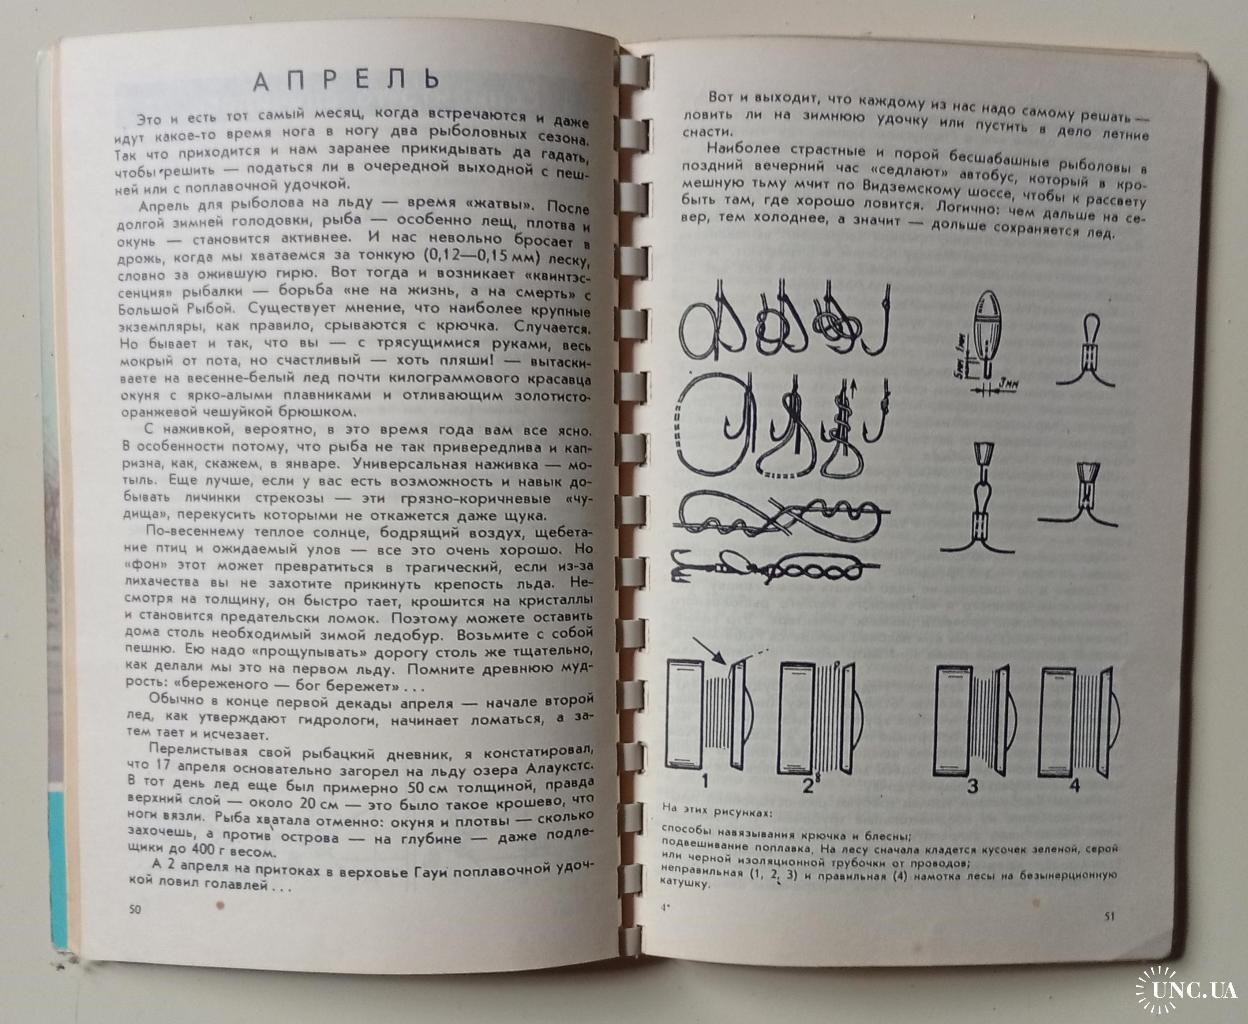 АПРЕЛЬ
Это и есть тот самый месяц, когда встречаются и даже
идут какое-то время нога в ногу два рыболовных сезона.
Так что приходится и нам заранее прикидывать да гадать,
чтобы решить — податься ли в очередной выходной с пеш-
ней или с поплавочной удочкой.
Апрель для рыболова на льду — время «жатвы». После
долгой зимней голодовки, рыба — особенно лещ, плотва и
окунь — становится активнее. И нас невольно бросает в
дрожь, когда мы хватаемся за тонкую (0,12—0,15 мм) леску,
словно за ожившую гирю. Вот тогда и возникает «квинтэс-
сенция» рыбалки — борьба «не на жизнь, а на смерть» с
Большой Рыбой. Существует мнение, что наиболее крупные
экземпляры, как правило, срываются с крючка. Случается.
Но бывает и так, что вы — с трясущимися руками, весь
мокрый от пота, но счастливый — хоть пляши! — вытаски-
ваете на весенне-белый лед почти килограммового красавца
окуня с ярко-алыми плавниками и отливающим золотисто-
оранжевой чешуйкой брюшком.
С наживкой, вероятно, в это время года вам все ясно.
В особенности потому, что рыба не так привередлива и кап-
ризна, как, скажем, в январе. Универсальная наживка — мо-
тыль. Еще лучше, если у вас есть возможность и навык до-
бывать личинки стрекозы — эти грязно-коричневые «чу-
дища», перекусить которыми не откажется даже щука.
По-весеннему теплое солнце, бодрящий воздух, щебета-
ние птиц и ожидаемый улов — все это очень хорошо. Но
«фон» этот может превратиться в трагический, если из-за
лихачества вы не захотите прикинуть крепость льда. Не-
смотря на толщину, он быстро тает, крошится на кристаллы
и становится предательски ломок. Поэтому можете оставить
дома столь необходимый зимой ледобур. Возьмите с собой
пешню. Ею надо «прощупывать» дорогу столь же тщательно,
как делали мы это на первом льду. Помните древнюю муд-
рость: «береженого — бог бережет» . . .
Обычно в конце первой декады апреля — начале второй
лед, как утверждают гидрологи, начинает ломаться, а за-
тем тает и исчезает.
Перелистывая свой рыбацкий дневник, я констатировал,
что 17 апреля основательно загорел на льду озера Алаукстс.
В тот день лед еще был примерно 50 см толщиной, правда
верхний слой — около 20 см — это было такое крошево, что
ноги вязли. Рыба хватала отменно: окуня и плотвы — сколько
захочешь, а против острова — на глубине — даже подле-
щики до 400 г весом.
А 2 апреля на притоках в верховье Гауи поплавочной удоч-
кой ловил голавлей . . .
50
Вот и выходит, что каждому из нас надо самому решать —
ловить ли на зимнюю удочку или пустить в дело летние
снасти.
Наиболее страстные и порой бесшабашные рыболовы в
поздний вечерний час «седлают» автобус, который в кро-
мешную тьму мчит по Видземскому шоссе, чтобы к рассвету
быть там, где хорошо ловится. Логично: чем дальше на се-
вер, тем холоднее, а значит — дольше сохраняется лед.
5мм 1мм
3мм
1
2
3
4
На этих рисунках:
способы навязывания крючка и блесны;
подвешивание поплавка. На лесу сначала кладется кусочек зеленой, серой
или черной изоляционной трубочки от проводов;
неправильная (1, 2, 3) и правильная (4) намотка лесы на безынерционную
катушку.
4*
51
UNC.UA